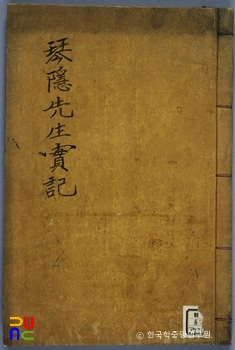 琴隱先生實記
© 한국학중앙연구원